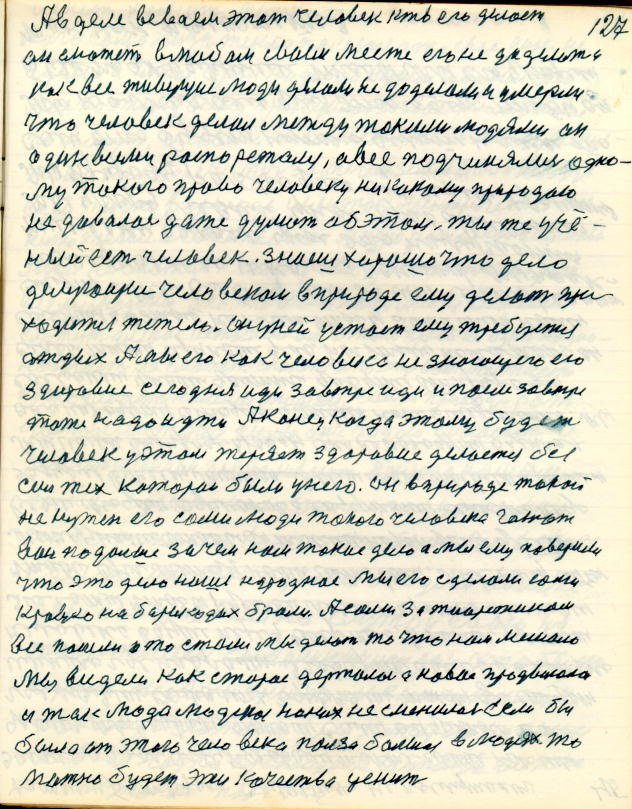 127
А в деле веваем этот человек кто его делает
он сможет в любом своем месте его не доделать
как все живущие люди делали не доделали и умерли
что человек делал между такими людями он
один всеми распоретался, а все подчинялися одно-
му такого право человеку никакому природою
не давалос даже думат об этом. ты же учё-
ный ест человек. знаеш хорошо что дело
делующие человеком в природе ему делат при
ходится тежело. он у ней устает ему требуется
отдых А мы его как человека не знающего его
здоровие сегодня иди завтре иди и после завтре
тоже надо идти А конец когда этому будет
человек у этом теряет здоровие делается без
сил тех которые были у него. он в природе такой
не нужен его сами люди такого человека гонют
вон подальше зачем нам такое дело а мы ему поверили
что это дело наше народное мы его сделали сами
кровю на барикадах брали. А сами за теоретиком
все пошли и то стали мы делат то что нам мешало
мы видели как старое держалос а новое продвигалос
и так люда людей на них не сменилас если бы
была от этого человека полза болшая в людях то
можно будет эти качества ценит